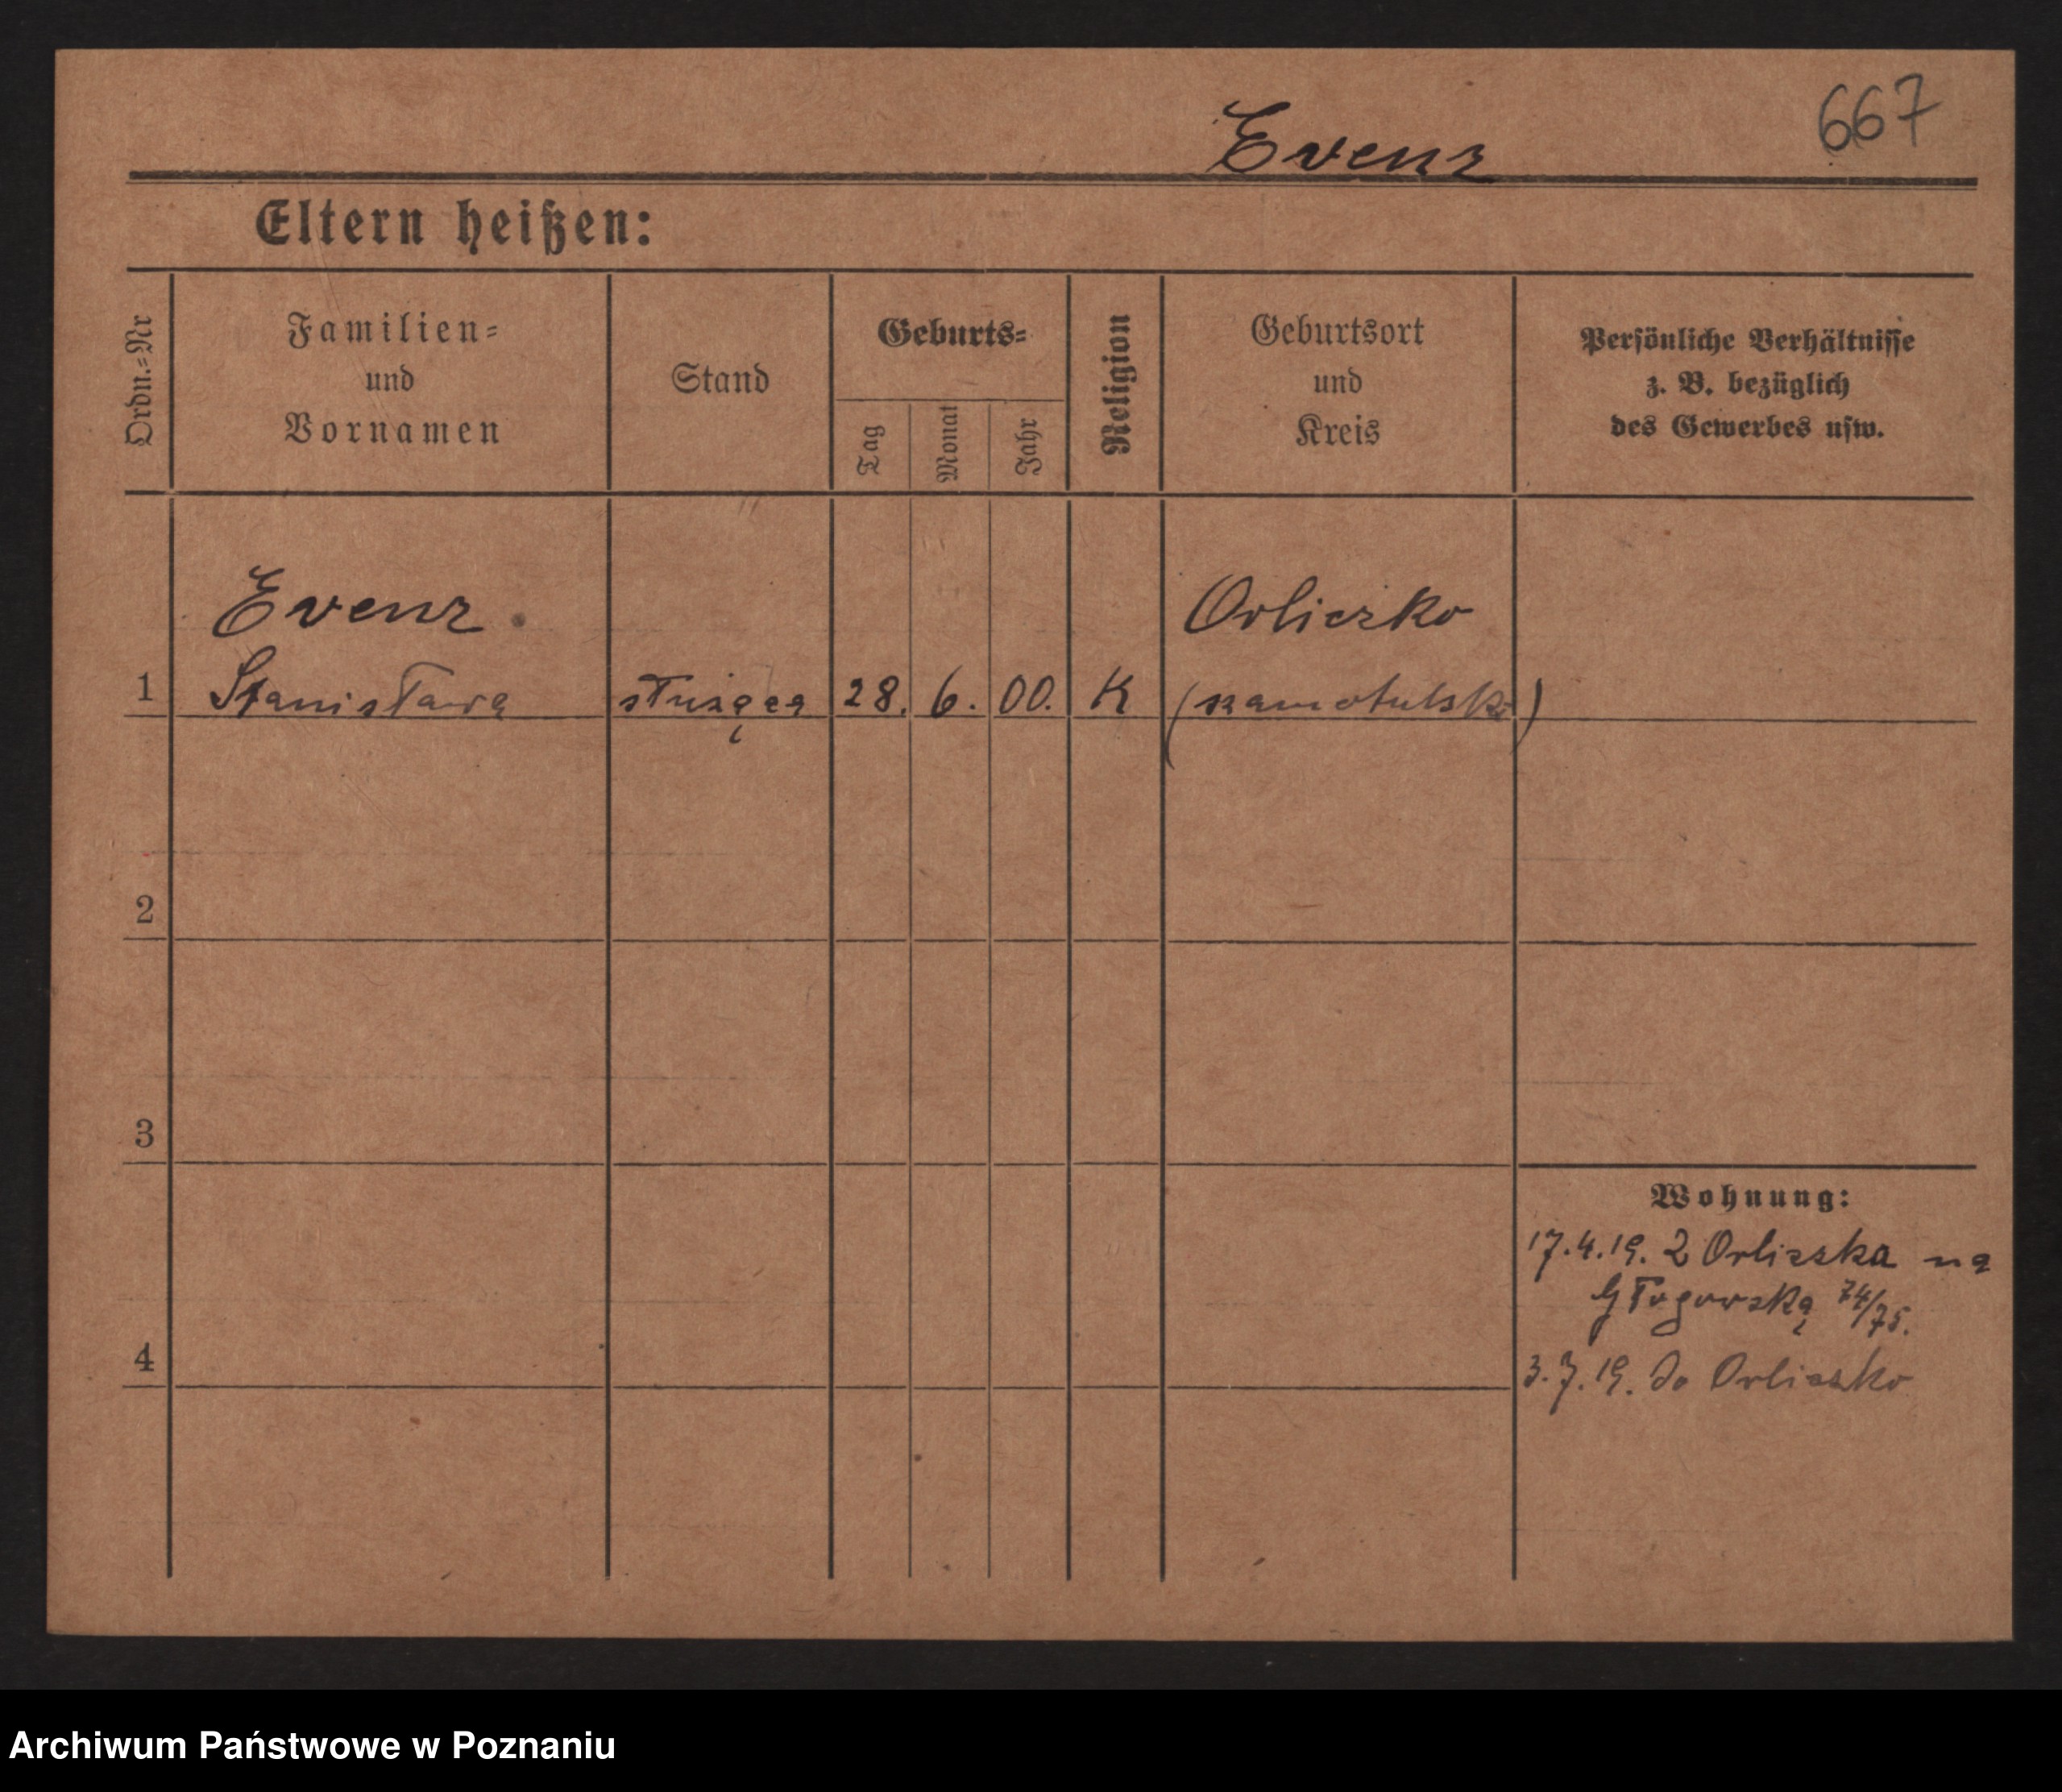 667
Evenz
Eltern heißen:
Ordn.=Nr
Familien=
und
Vornamen
Stand
Geburts=
Tag
Monat
Jahr
Religion
Geburtsort
und
Kreis
Persönliche Verhältnisse
z. B. bezüglich
des Gewerbes usw.
Evenz
Orliczko
1 Stanisława służąca 28. 6. 00. K (szamotulski)
2
3
Wohnung:
17.4.19. Z Orliczka na
Głogowską 74/75.
4
3.7.19. do Orliczko
Archiwum Państwowe w Poznaniu